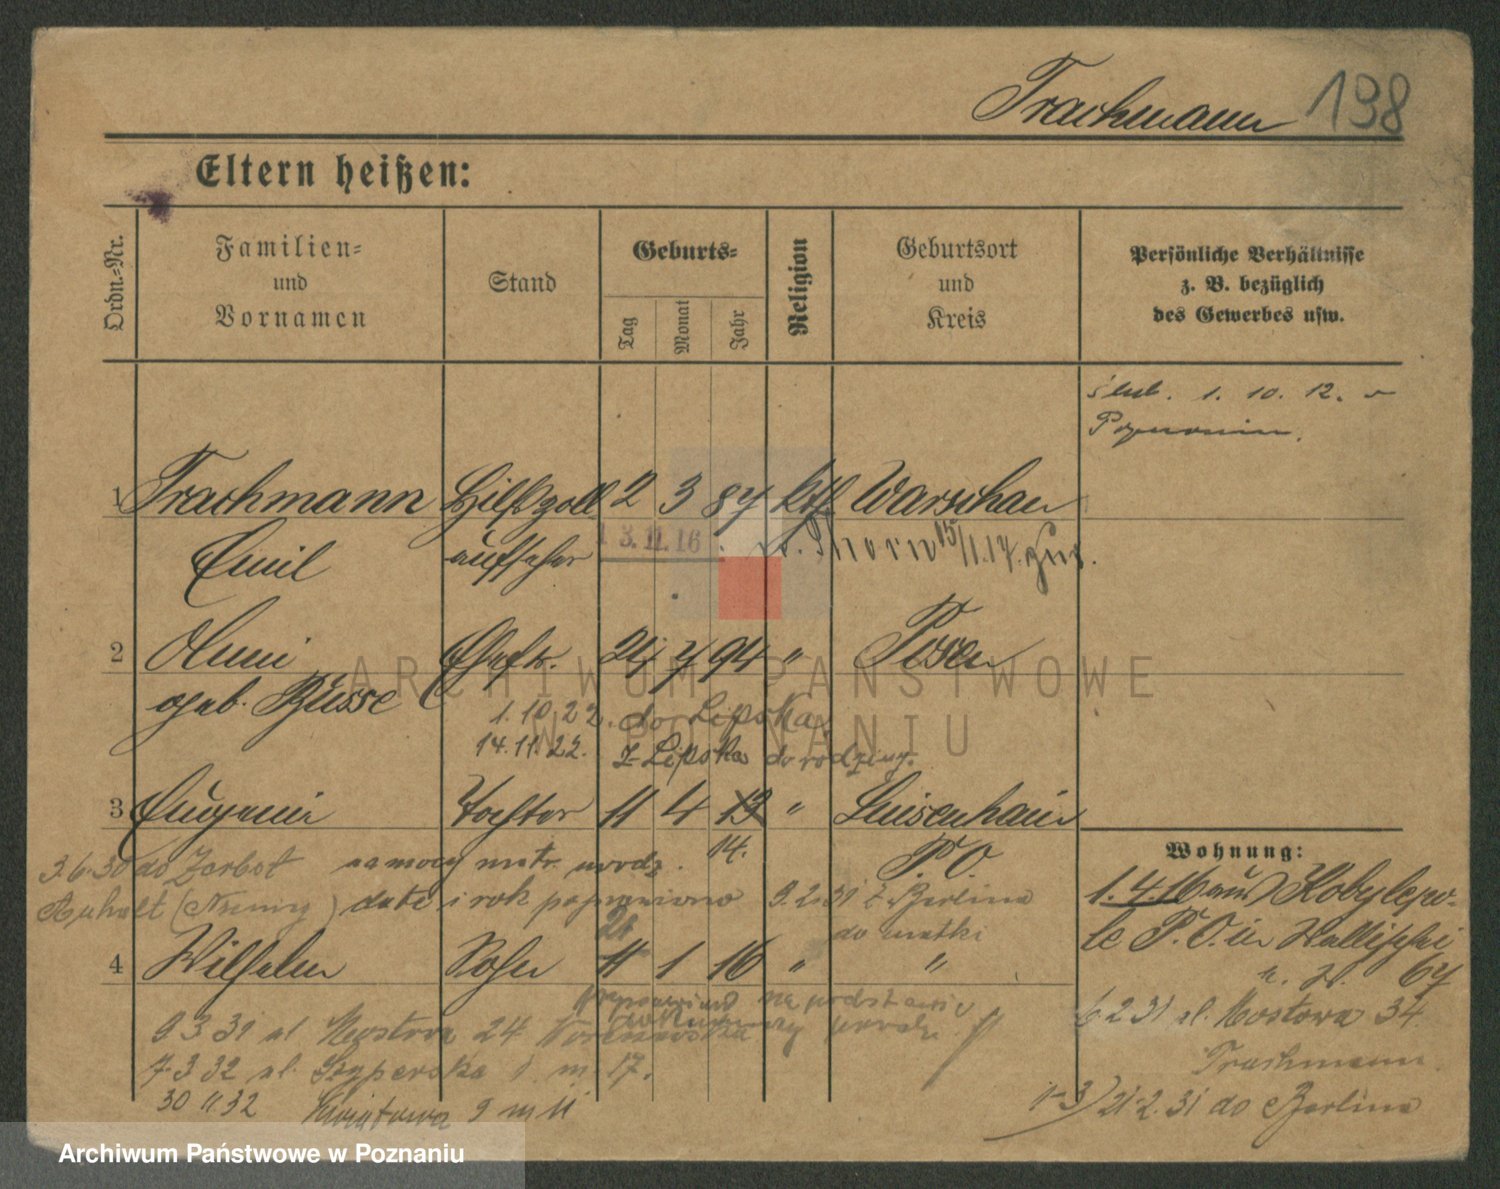 Trachmann 198
Eltern heißen:
Ordn.-Nr.
Familien-
und
Vornamen
Stand
Geburts-
Tag
Monat
Jahr
Religion
Geburtsort
und
Kreis
Persönliche Verhältnisse
z. B. bezüglich
des Gewerbes usw.
ślub. 1. 10. 12. v
Poznaniu.
1 Trachmann Hilfszoll 2 3 87 kth Warschau
Emil aufseher 13.11.16. Thorn 15/11.17. zur.
2 Anni Ehefr. 24 7 94 " Posen
geb. Busse
1.10.22. do Lipska
14.11.22. z Lipska do rodziny.
3 Eugenie Tochter 11 4 13 " Luisenhain
14. P. O.
3.6.30 do Zerbst na mocy metr. urodz.
Anhalt (Niemcy) datę i rok poprawiono 9.2.31 z Berlina
21 do matki
4 Wilhelm Sohn 11 1 16 " "
poprawiono na podstawie
9 3 31 ul Mostowa 24
7.3.32 ul. Szyperska m. 17.
30 11 32 Kwiatowa 9 m 11
Wohnung:
1.4.16 aus Kobylepo-
le P. O. in Wallischei
67
6 2 31 ul. Mostowa 34
Trachmann.
1-3) 21.2.31 do Berlina
ARCHIWUM PAŃSTWOWE
W POZNANIU
Archiwum Państwowe w Poznaniu